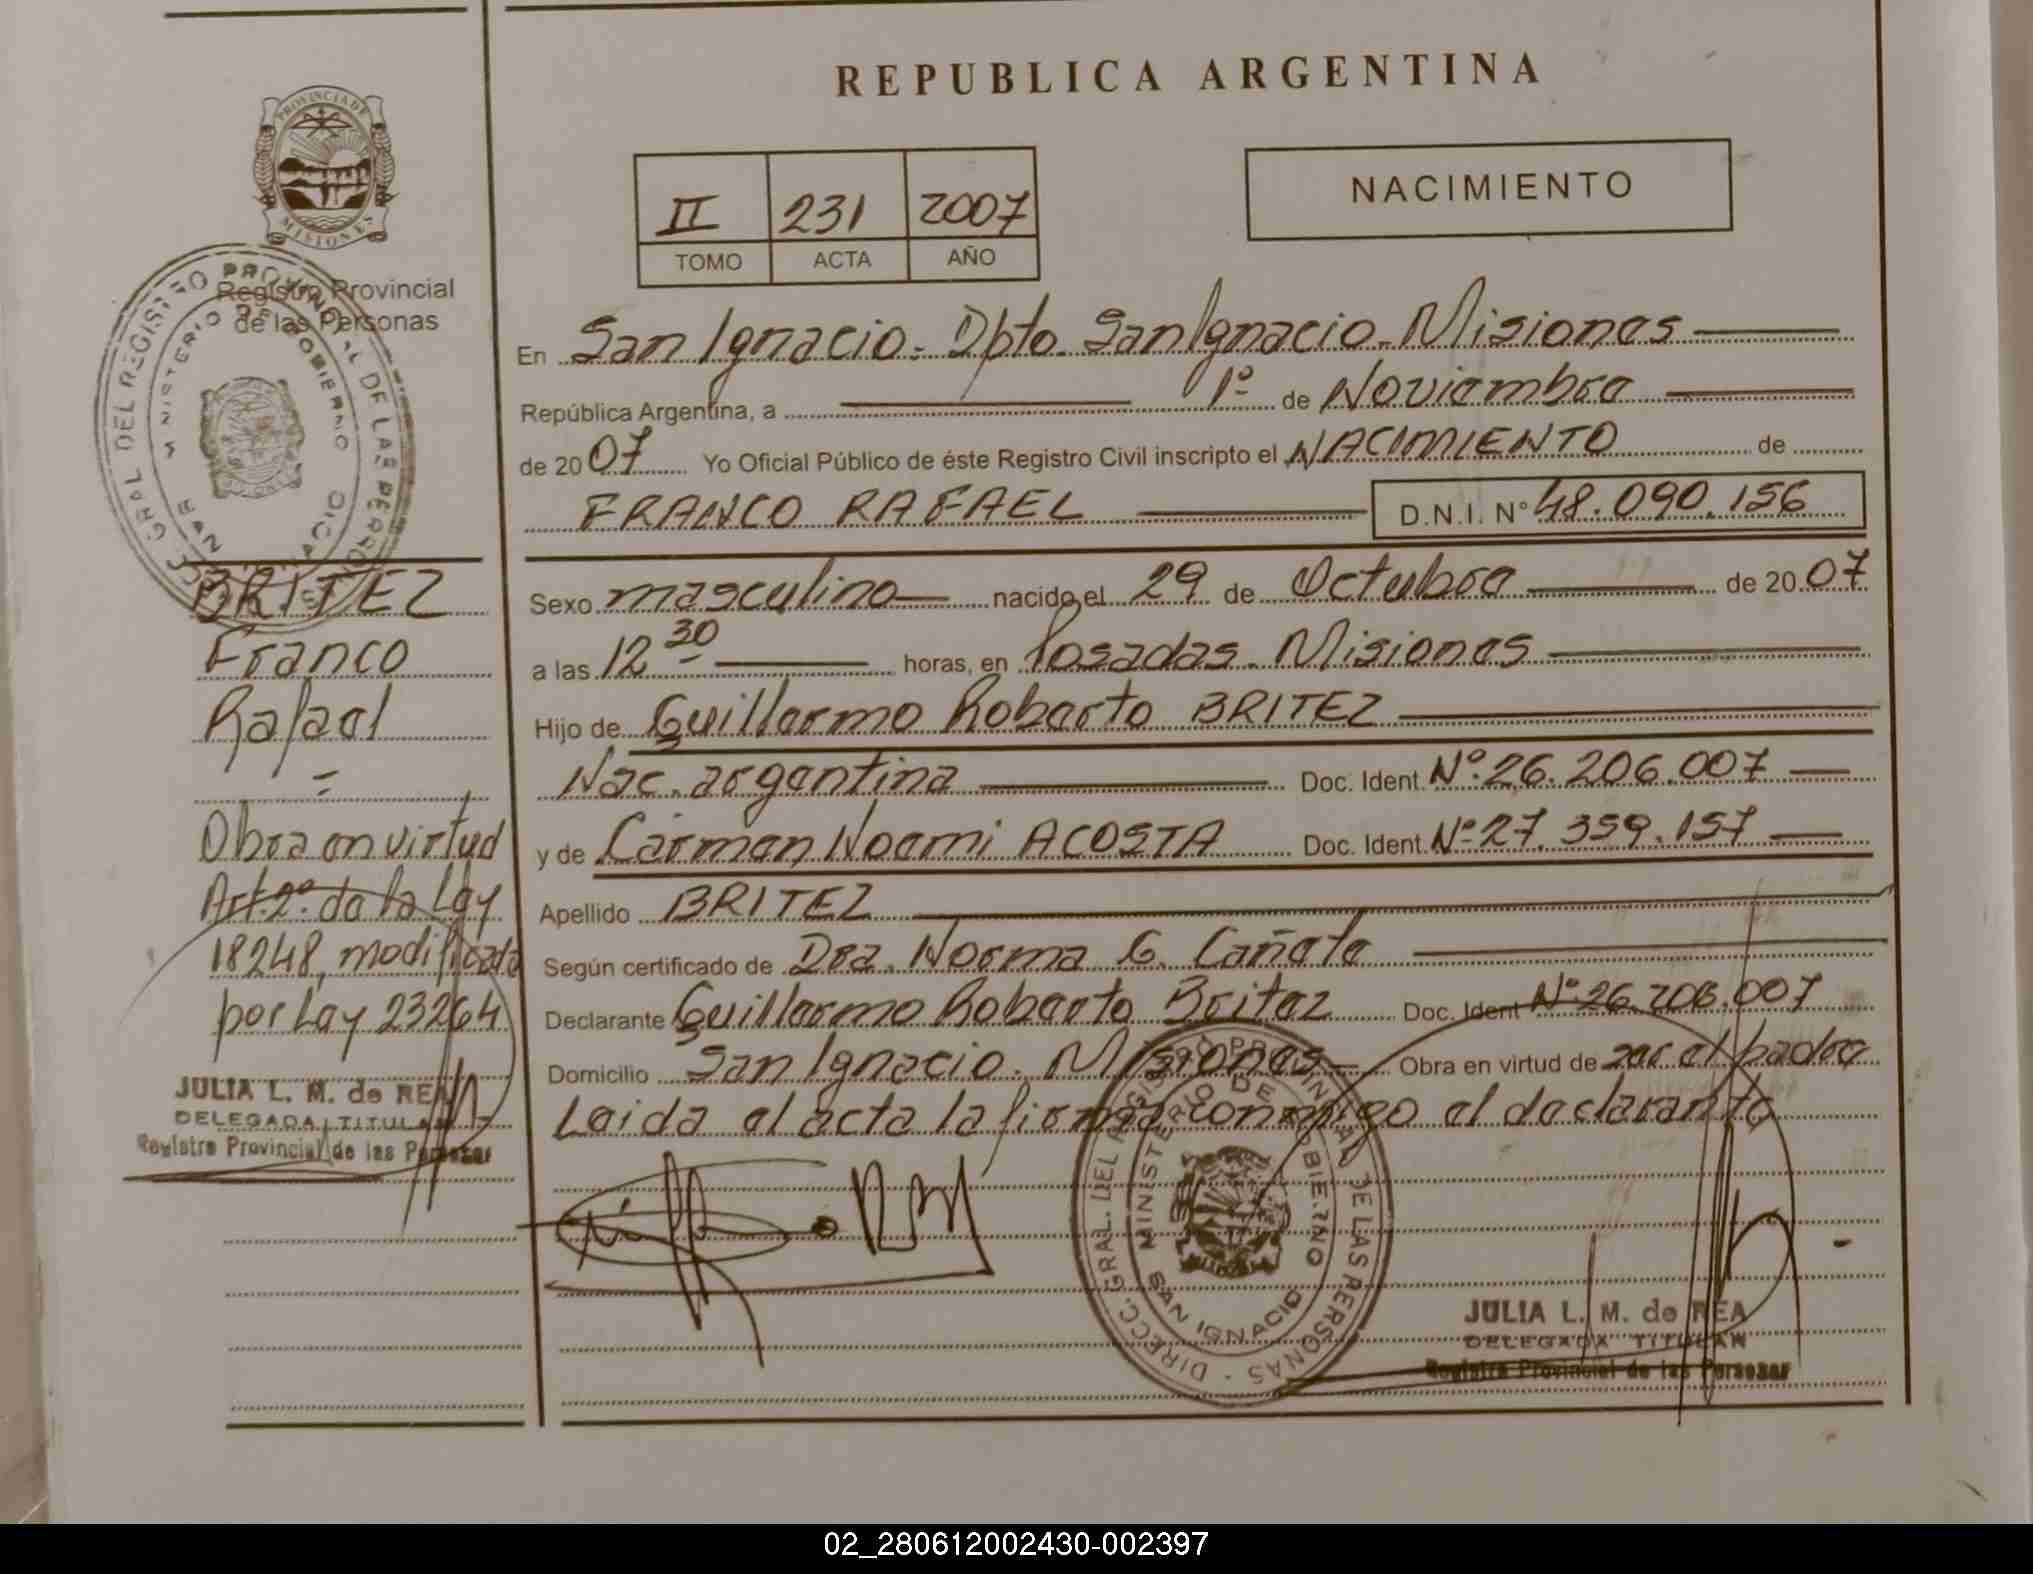 REPUBLICA ARGENTINA
PROVINCIA DE
MISIONES
Registro Provincial
de las Personas
II 231 2007
TOMO ACTA AÑO
NACIMIENTO
En San Ignacio. Dpto. San Ignacio. Misiones
República Argentina, a 1º de Noviembre
de 2007 Yo Oficial Público de éste Registro Civil inscripto el NACIMIENTO de
FRANCO RAFAEL D.N.I. Nº 48.090.156
Sexo masculino nacido el 29 de Octubre de 2007
a las 12 30 horas, en Posadas. Misiones
Hijo de Guillermo Roberto BRITEZ
Nac. argentina Doc. Ident. Nº 26.206.007
y de Carmen Noemi ACOSTA Doc. Ident. Nº 27.359.157
Apellido BRITEZ
Según certificado de Dra. Norma G. Cañete
Declarante Guillermo Roberto Britez Doc. Ident Nº 26.206.007
Domicilio San Ignacio. Misiones Obra en virtud de ser el padre
Leida el acta la firma conmigo el declarante
BRITEZ
Franco
Rafael
Obra en virtud
Art. 2º de la Ley
18248, modificada
por Ley 23264
JULIA L. M. de REA
DELEGADA TITULAR
Registro Provincial de las Personas
DIRECC. GRAL. DEL REGISTRO PROVINCIAL DE LAS PERSONAS
MINISTERIO DE GOBIERNO
SAN IGNACIO
DIRECC. GRAL. DEL REGISTRO PROVINCIAL DE LAS PERSONAS
MINISTERIO DE GOBIERNO
SAN IGNACIO
JULIA L. M. de REA
DELEGADA TITULAR
Registro Provincial de las Personas
02_280612002430-002397